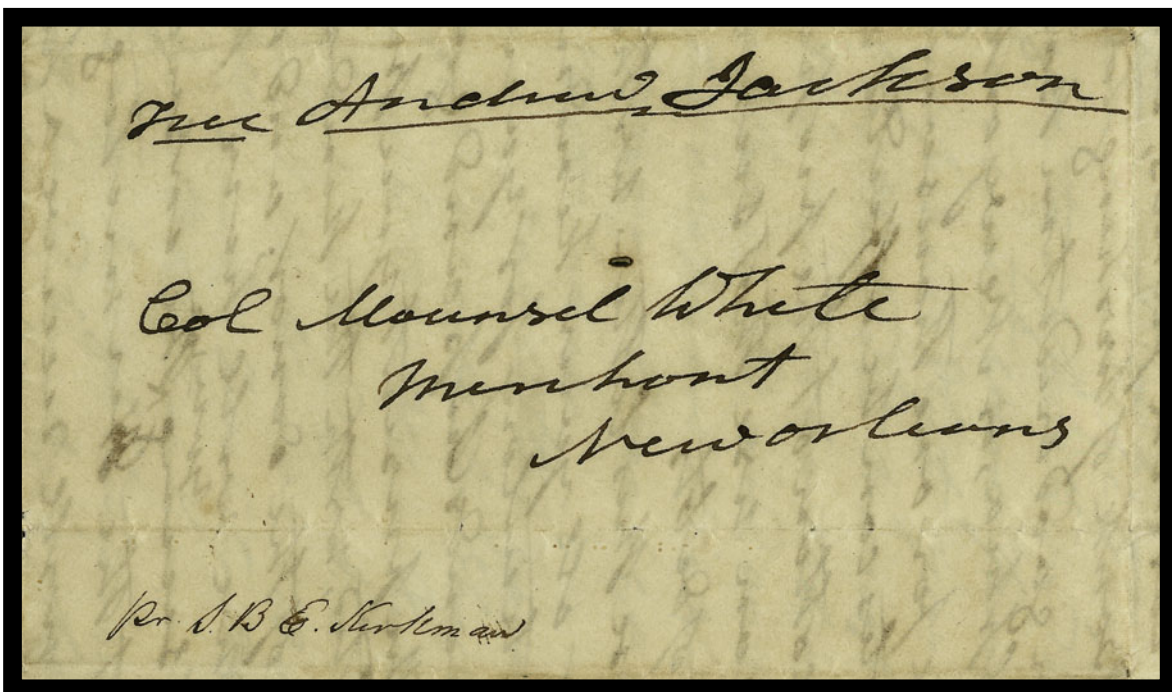 Free Andrew Jackson
Col Maunsel White
Merchant
New orleans
Pr. S. B E. Kirkman